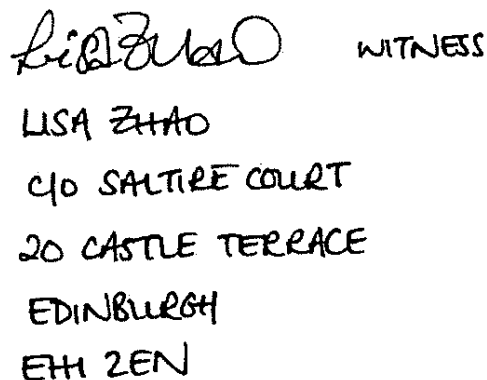 Lisa Zhao WITNESS
LISA ZHAO
C/O SALTIRE COURT
20 CASTLE TERRACE
EDINBURGH
EH1 2EN